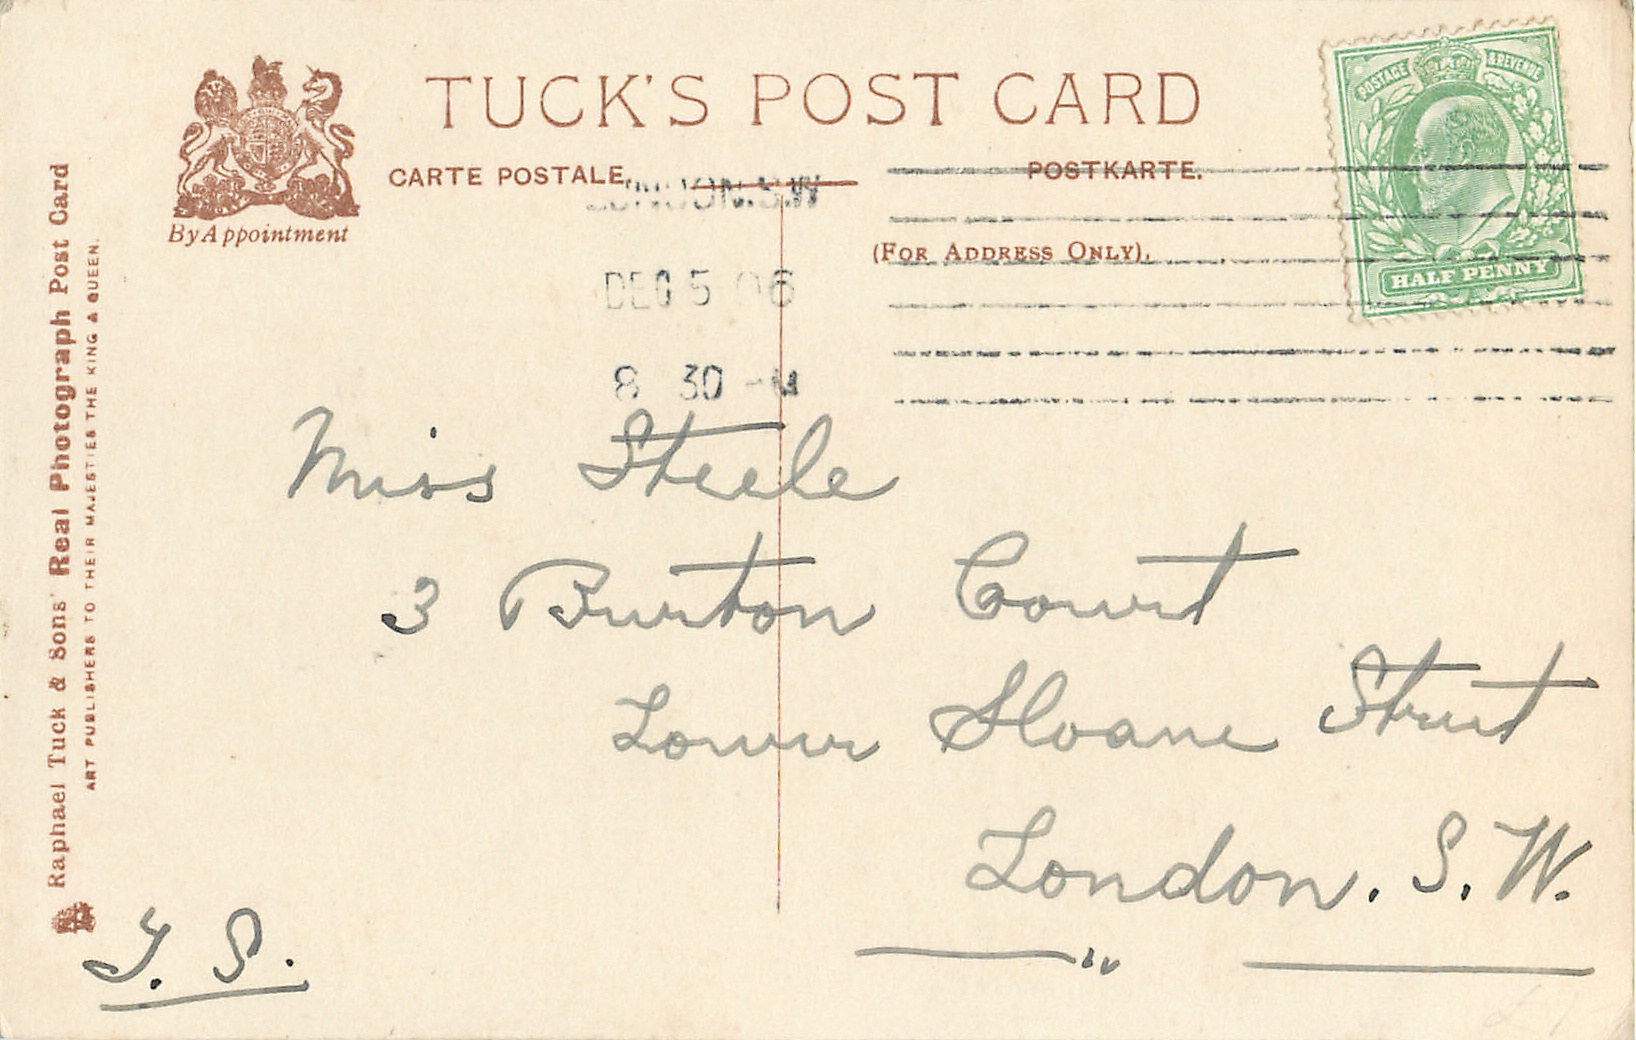 TUCK'S POST CARD
CARTE POSTALE.
POSTKARTE.
(FOR ADDRESS ONLY).
By Appointment
POSTAGE & REVENUE
HALF PENNY
LONDON.S.W
DEC 5 06
8 30
Miss Steele
3 Burton Court
Lower Sloane Street
London. S. W.
S.
Raphael Tuck & Sons' Real Photograph Post Card
ART PUBLISHERS TO THEIR MAJESTIES THE KING & QUEEN.